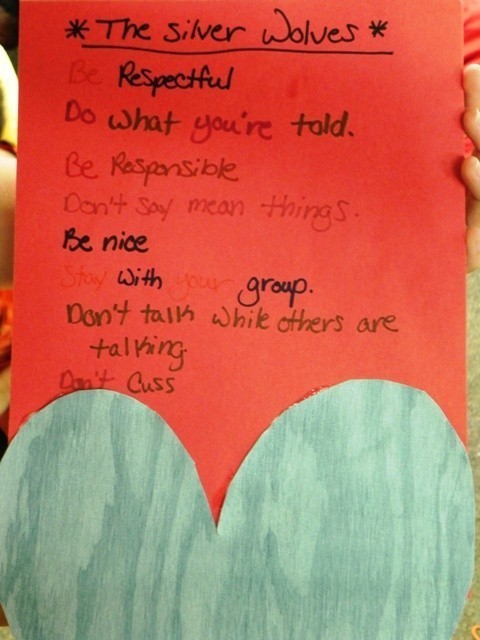 * The silver Wolves *
Be Respectful
Do what you're told.
Be Responsible
Don't say mean things.
Be nice
Stay with your group.
Don't talk while others are
talking.
Don't Cuss